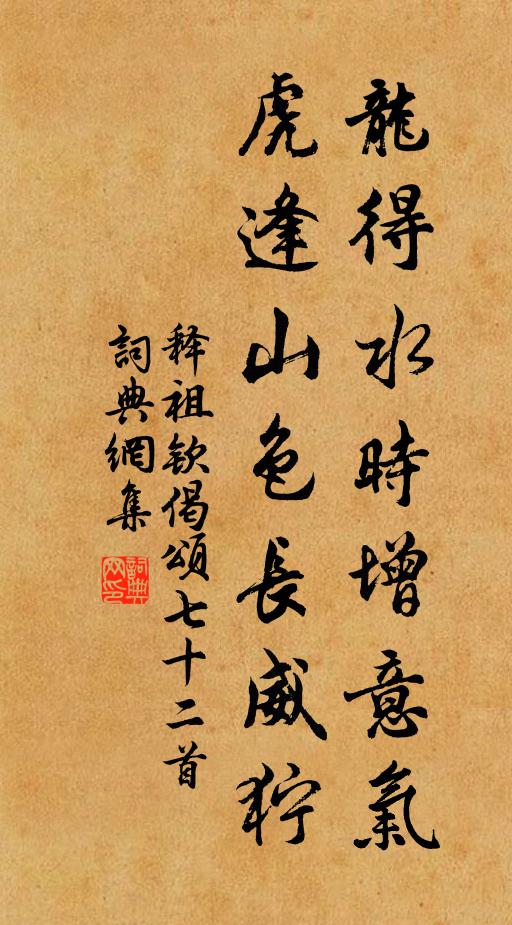 龍得水時增意氣
虎逢山色長威狞
释祖钦偈頌七十二首
詞典網集
詞典网印